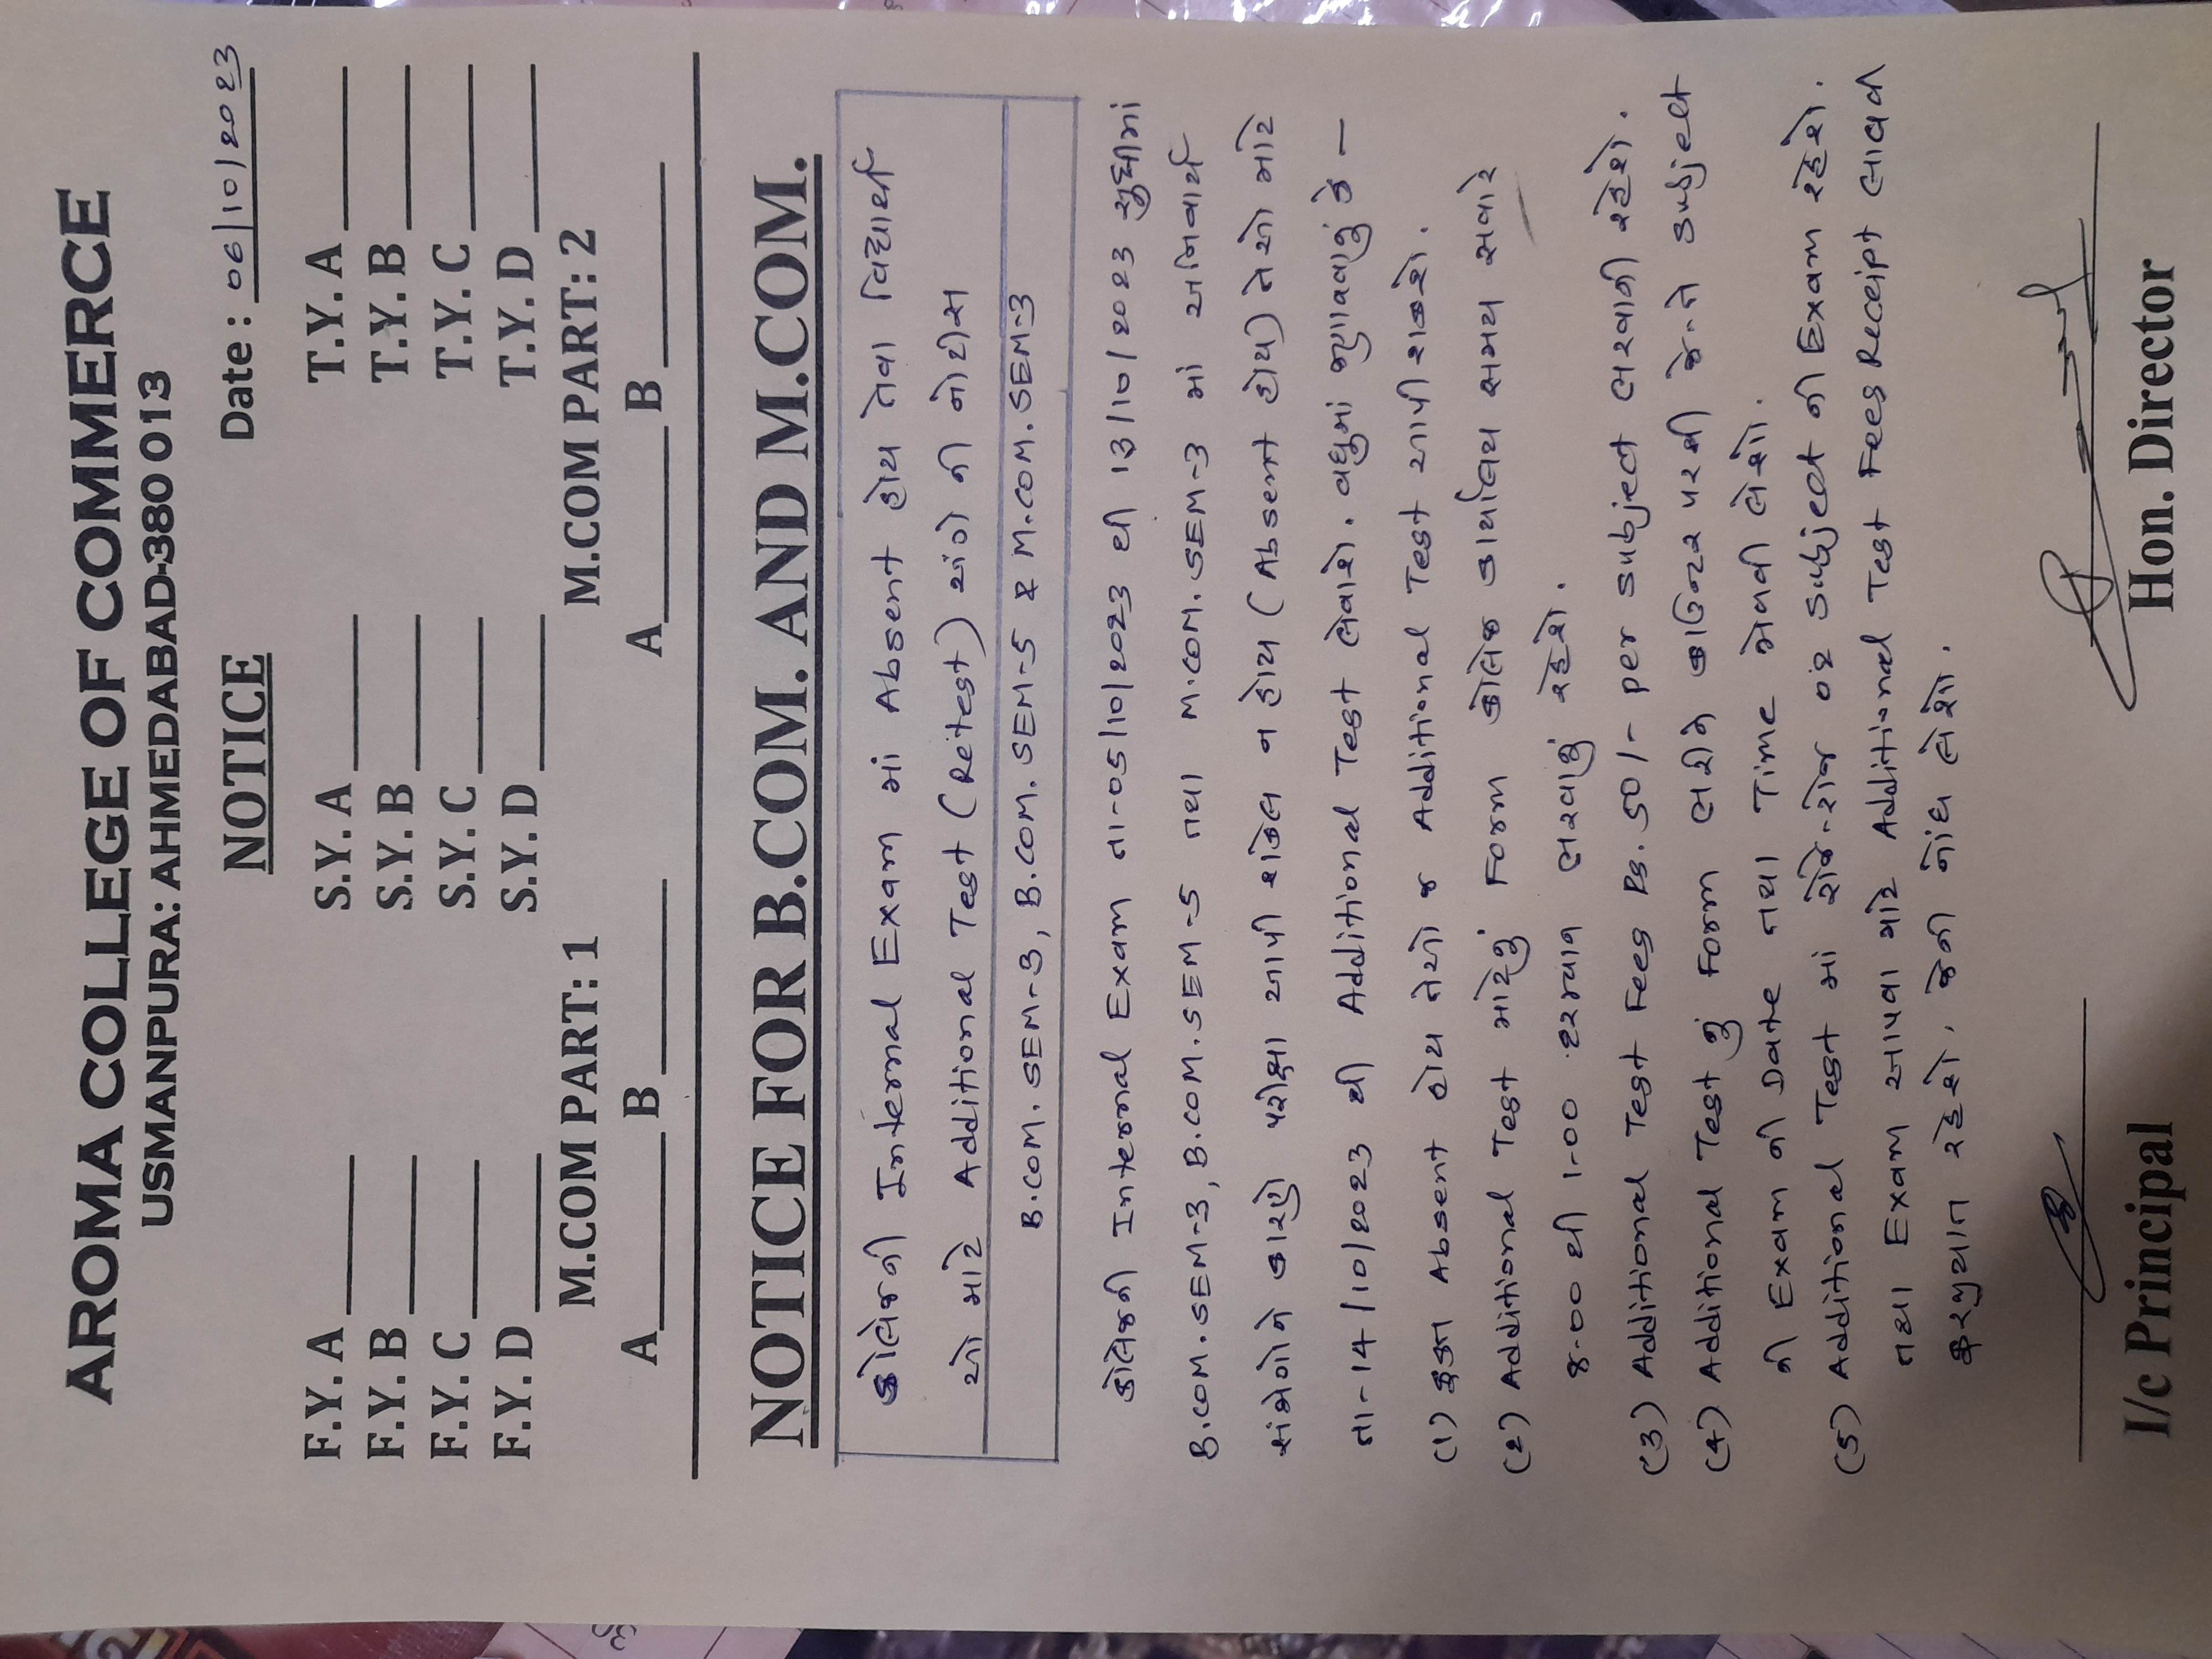 AROMA COLLEGE OF COMMERCE
USMANPURA: AHMEDABAD-380 013
NOTICE
Date : 06/10/2023
F.Y. A ____ S.Y. A ____ T.Y. A ____
F.Y. B ____ S.Y. B ____ T.Y. B ____
F.Y. C ____ S.Y. C ____ T.Y. C ____
F.Y. D ____ S.Y. D ____ T.Y. D ____
M.COM PART: 1 M.COM PART: 2
A____ B____ A____ B____
NOTICE FOR B.COM. AND M.COM.
કોલેજની Internal Exam માં Absent હોય તેવા વિદ્યાર્થી
ઓ માટે Additional Test (Retest) અંગે ની નોટીસ
B.COM. SEM-3, B.COM. SEM-5 & M.COM. SEM-3
કોલેજની Internal Exam તા-05/10/2023 થી 13/10/2023 સુધીમાં
B.COM. SEM-3, B.COM. SEM-5 તથા M.COM. SEM-3 માં અનિવાર્ય
સંજોગોને કારણે પરીક્ષા આપી શકેલ ન હોય (Absent હોય) તેઓ માટે
તા-14/10/2023 થી Additional Test લેવાશે. વધુમાં જણાવવાનું કે -
(1) ફક્ત Absent હોય તેઓ જ Additional Test આપી શકશે.
(2) Additional Test માટેનું Form કોલેજ કાર્યાલય સમય સવારે
8-00 થી 1-00 દરમ્યાન ભરવાનું રહેશે.
(3) Additional Test Fees Rs. 50/- per Subject ભરવાની રહેશે.
(4) Additional Test નું Form ભરીને કાઉન્ટર પરથી જે-તે Subject
ની Exam ની Date તથા Time મેળવી લેશો.
(5) Additional Test માં રોજે-રોજ 02 Subject ની Exam રહેશે.
તથા Exam આપવા માટે Additional Test Fees Receipt લાવવી
ફરજીયાત રહેશે. જેની નોંધ લેશો.
I/c Principal Hon. Director